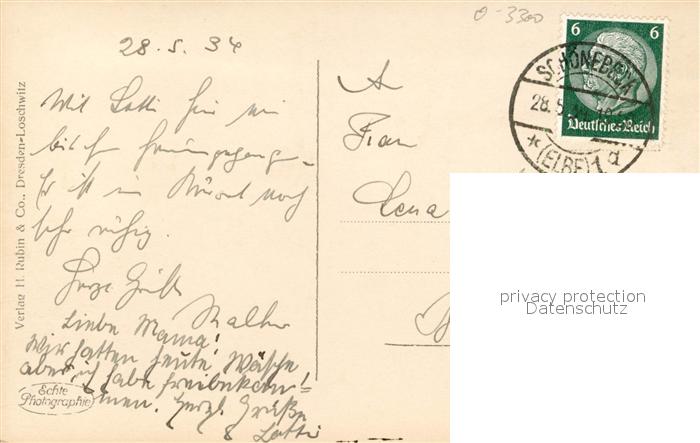 0-3300
28.5.34
Mit Lotti hier ein
bisch
Es ist im Kurort noch
sehr ruhig.
Herzl Grüße
Walter
Liebe Mama!
Wir hatten heute Wäsche
aber ich habe freibekom!
men. Herzl. Grüße
Lotti
Echte
Photographie
Verlag H. Rubin & Co., Dresden-Loschwitz
6 6
Deutsches Reich
SCHÖNEBECK
28.5
* (ELBE) 1 d
An
Frau
Lena
privacy protection
Datenschutz